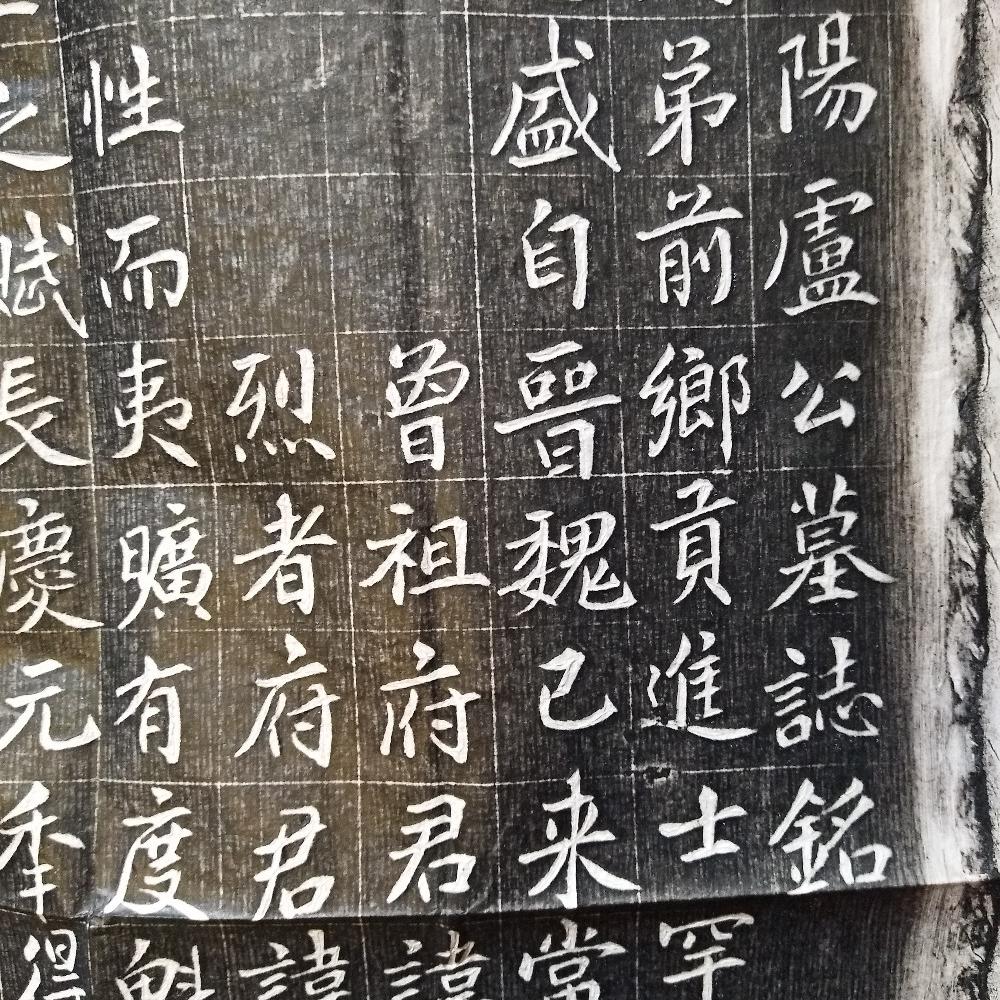 陽盧公墓誌銘
弟前鄉貢進士罕
盛自晉魏已来常
曾祖府君諱
烈者府君諱
性而夷曠有度魁
之賦長慶元秊得